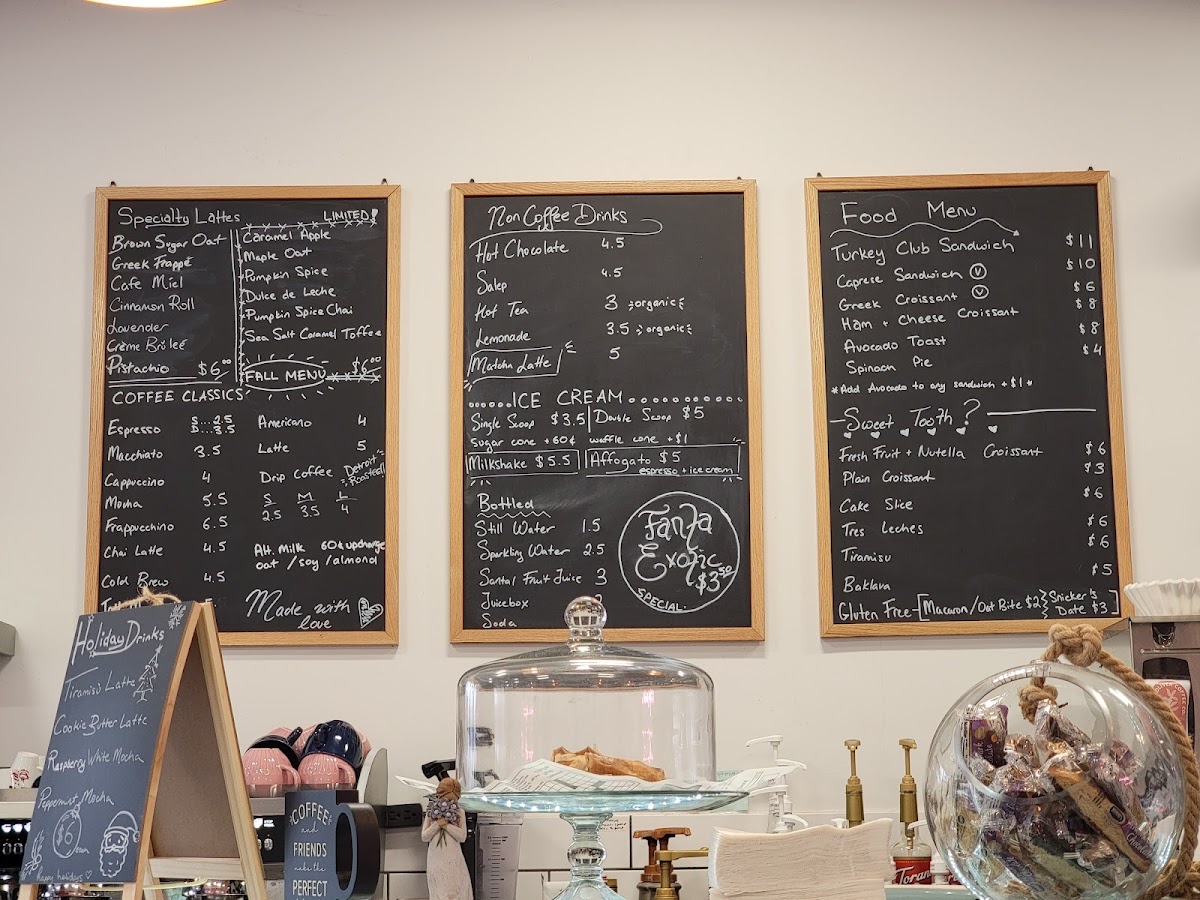 Specialty Lattes
Brown Sugar Oat
Greek Frappé
Cafe Miel
Cinnamon Roll
Lavender
Crème Brûleé
Pistachio $6⁰⁰
LIMITED!
Caramel Apple
Maple Oat
Pumpkin Spice
Dulce de Leche
Pumpkin Spice Chai
Sea Salt Caramel Toffee
FALL MENU $6⁰⁰
COFFEE CLASSICS
Espresso S...2.5
S...3.5
Macchiato 3.5
Cappuccino 4
Mocha 5.5
Frappuchino 6.5
Chai Latte 4.5
Cold Brew 4.5
Americano 4
Latte 5
Drip Coffee Detroit
Roasted!!
S M L
2.5 3.5 4
Alt. Milk 60¢ upcharge
oat /soy /almond
Made with
love
Non Coffee Drinks
Hot Chocolate 4.5
Salep 4.5
Hot Tea 3 organic
Lemonade 3.5 organic
Matcha Latte 5
ICE CREAM
Single Scoop $3.5 Double Scoop $5
sugar cone +60¢ waffle cone +$1
Milkshake $5.5 Affogato $5
espresso + ice cream
Bottled
Still Water 1.5
Sparkling Water 2.5
Santal Fruit Juice 3
Juicebox
Soda
Fanta
Exotic
$3⁵⁰
SPECIAL.
Food Menu
Turkey Club Sandwich $11
Caprese Sandwich V $10
Greek Croissant V $6
Ham + Cheese Croissant $8
Avocado Toast $8
Spinach Pie $4
*Add Avocado to any sandwich +$1*
Sweet Tooth?
Fresh Fruit + Nutella Croissant $6
Plain Croissant $3
Cake Slice $6
Tres Leches $6
Tiramisu $6
Baklava $5
Gluten Free-[Macaron/Oat Bite $2} Snicker's
Date $3]
Holiday Drinks
Tiramisù Latte
Cookie Butter Latte
Raspberry White Mocha
Peppermint Mocha
$6
happy holidays
COFFEE
and
FRIENDS
make the
PERFECT
Torani